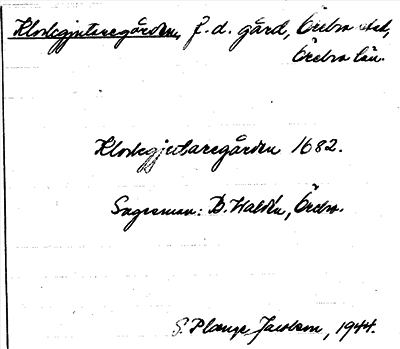 Klockgjutaregården, f. d. gård, Örebro stad,
Örebro län.
Klockgjutaregården 1682.
Sagesman: B. Waldén, Örebro.
S. Plange Jacobson, 1944.